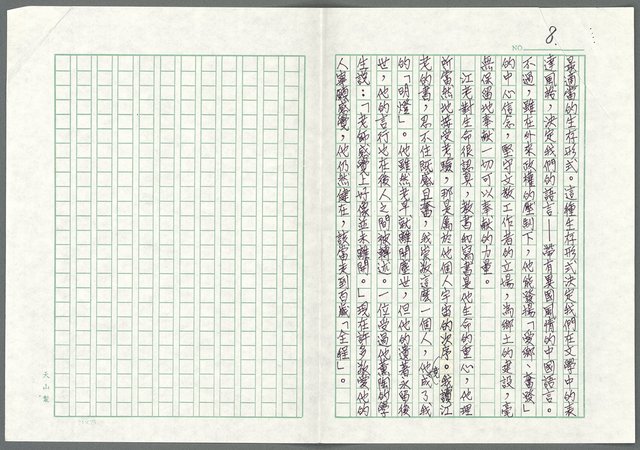 8.
NO.
最適當的生存形式。這種生存形式決定我們在文學中的表
達風格,決定我們的語言——帶有異國風情的中國語言。
不過,雖在外來政權的壓制下,他能發揚「愛鄉、奮發」
的中心信念,堅守文教工作者的立場,為鄉土的建設,毫
無保留地奉獻一切可以奉獻的力量。
江老對生命很認真,教書和寫書是他生命的重心,他理
所當然地接受考驗,那是屬於他個人宇宙的次序。我讀江
老的書,忍不住既感且奮,我崇敬這麼一個人,他成了我
的「明燈」。他雖然老早就離開塵世,但他的遺著永留後
世,他的言行也在後人之間被轉述。一位受過他薰陶的學
生說:「老師感覺上好像並未離開。」現在許多敬愛他的
人感覺,他仍然健在,該當走到百歲「全程」。
天山製